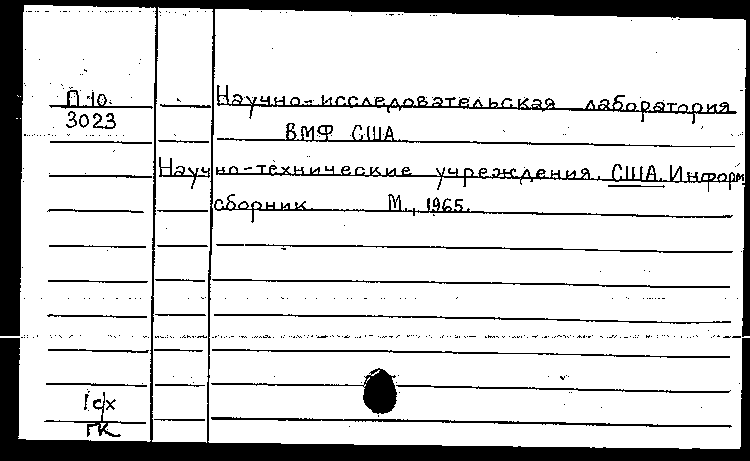 П.10.
3023
Научно-исследовательская лаборатория
ВМФ США
Научно-технические учреждения. США. Информ
сборник. М., 1965.
1с/х
ГК